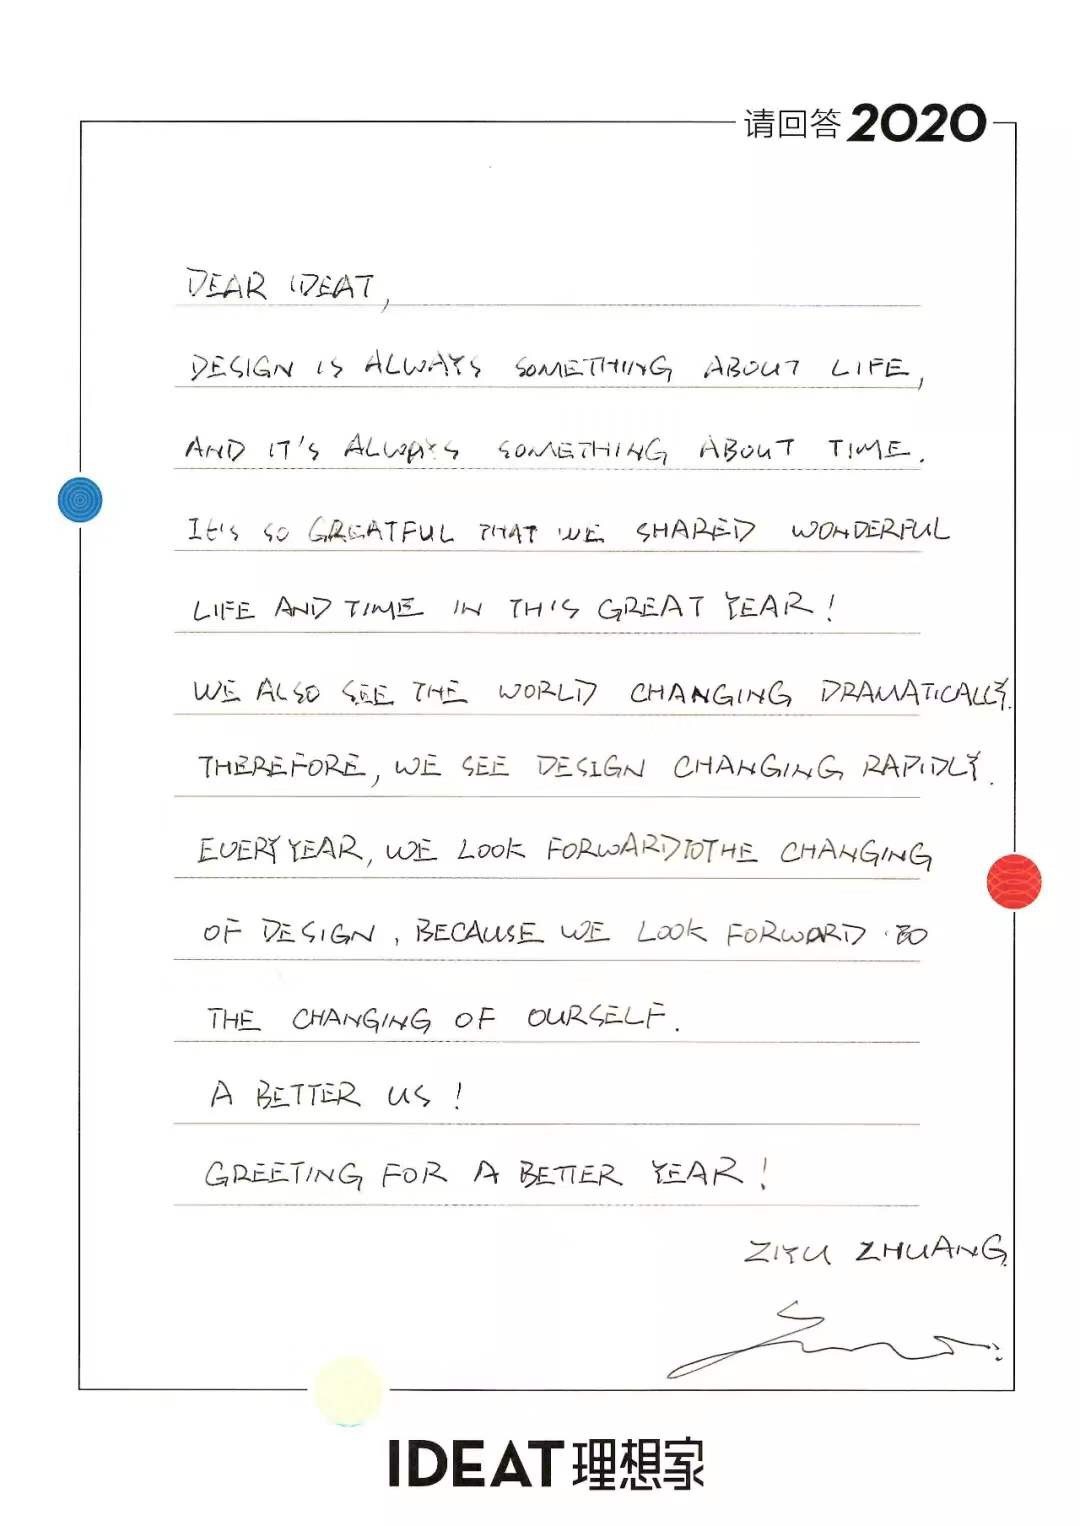 请回答2020
DEAR IDEAT,
DESIGN IS ALWAYS SOMETHING ABOUT LIFE,
AND IT'S ALWAYS SOMETHING ABOUT TIME.
It's SO GREATFUL THAT WE SHARED WONDERFUL
LIFE AND TIME IN THIS GREAT YEAR!
WE ALSO SEE THE WORLD CHANGING DRAMATICALLY.
THEREFORE, WE SEE DESIGN CHANGING RAPIDLY.
EVERY YEAR, WE LOOK FORWARD TO THE CHANGING
OF DESIGN, BECAUSE WE LOOK FORWARD TO
THE CHANGING OF OURSELF.
A BETTER US!
GREETING FOR A BETTER YEAR!
ZIYU ZHUANG
IDEAT理想家